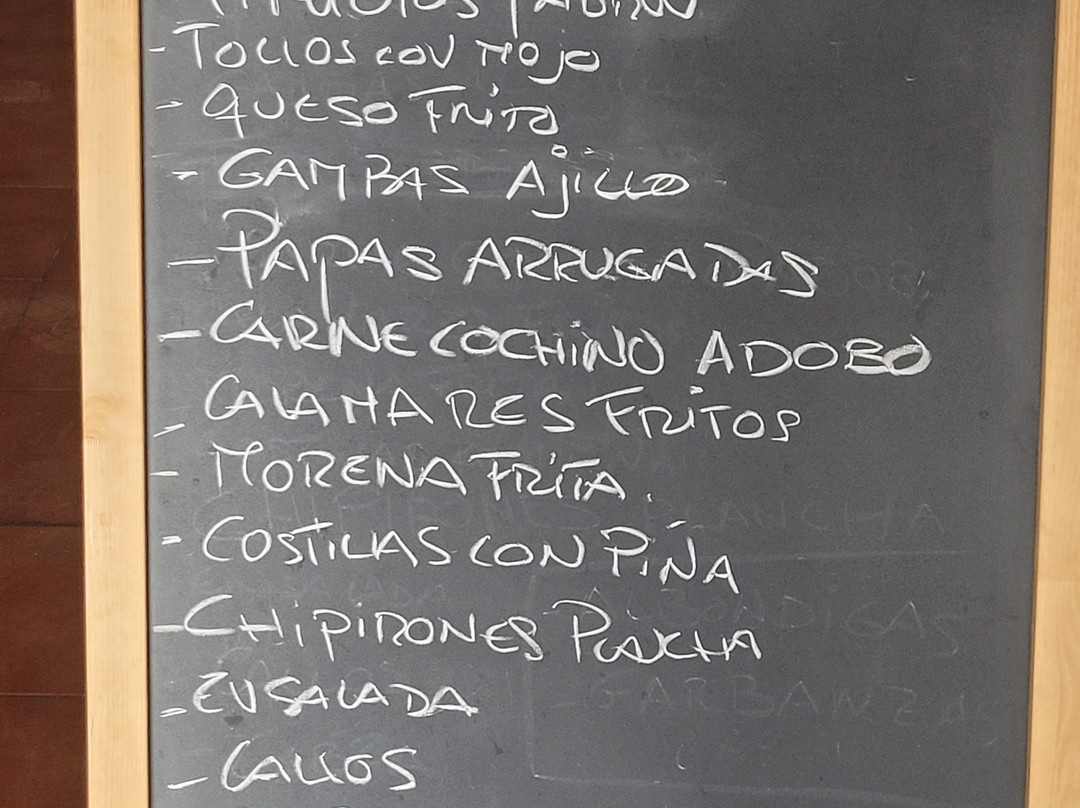 - TOLLOS CON MOJO
- QUESO FRITO
- GAMBAS AJILLO
- PAPAS ARRUGADAS
- CARNE COCHINO ADOBO
- CALAMARES FRITOS
- MORENA FRITA.
- COSTILLAS CON PIÑA
- CHIPIRONES PLANCHA
- ENSALADA
- CALLOS
PLANCHA
ALBONDIGAS
- GARBANZAS